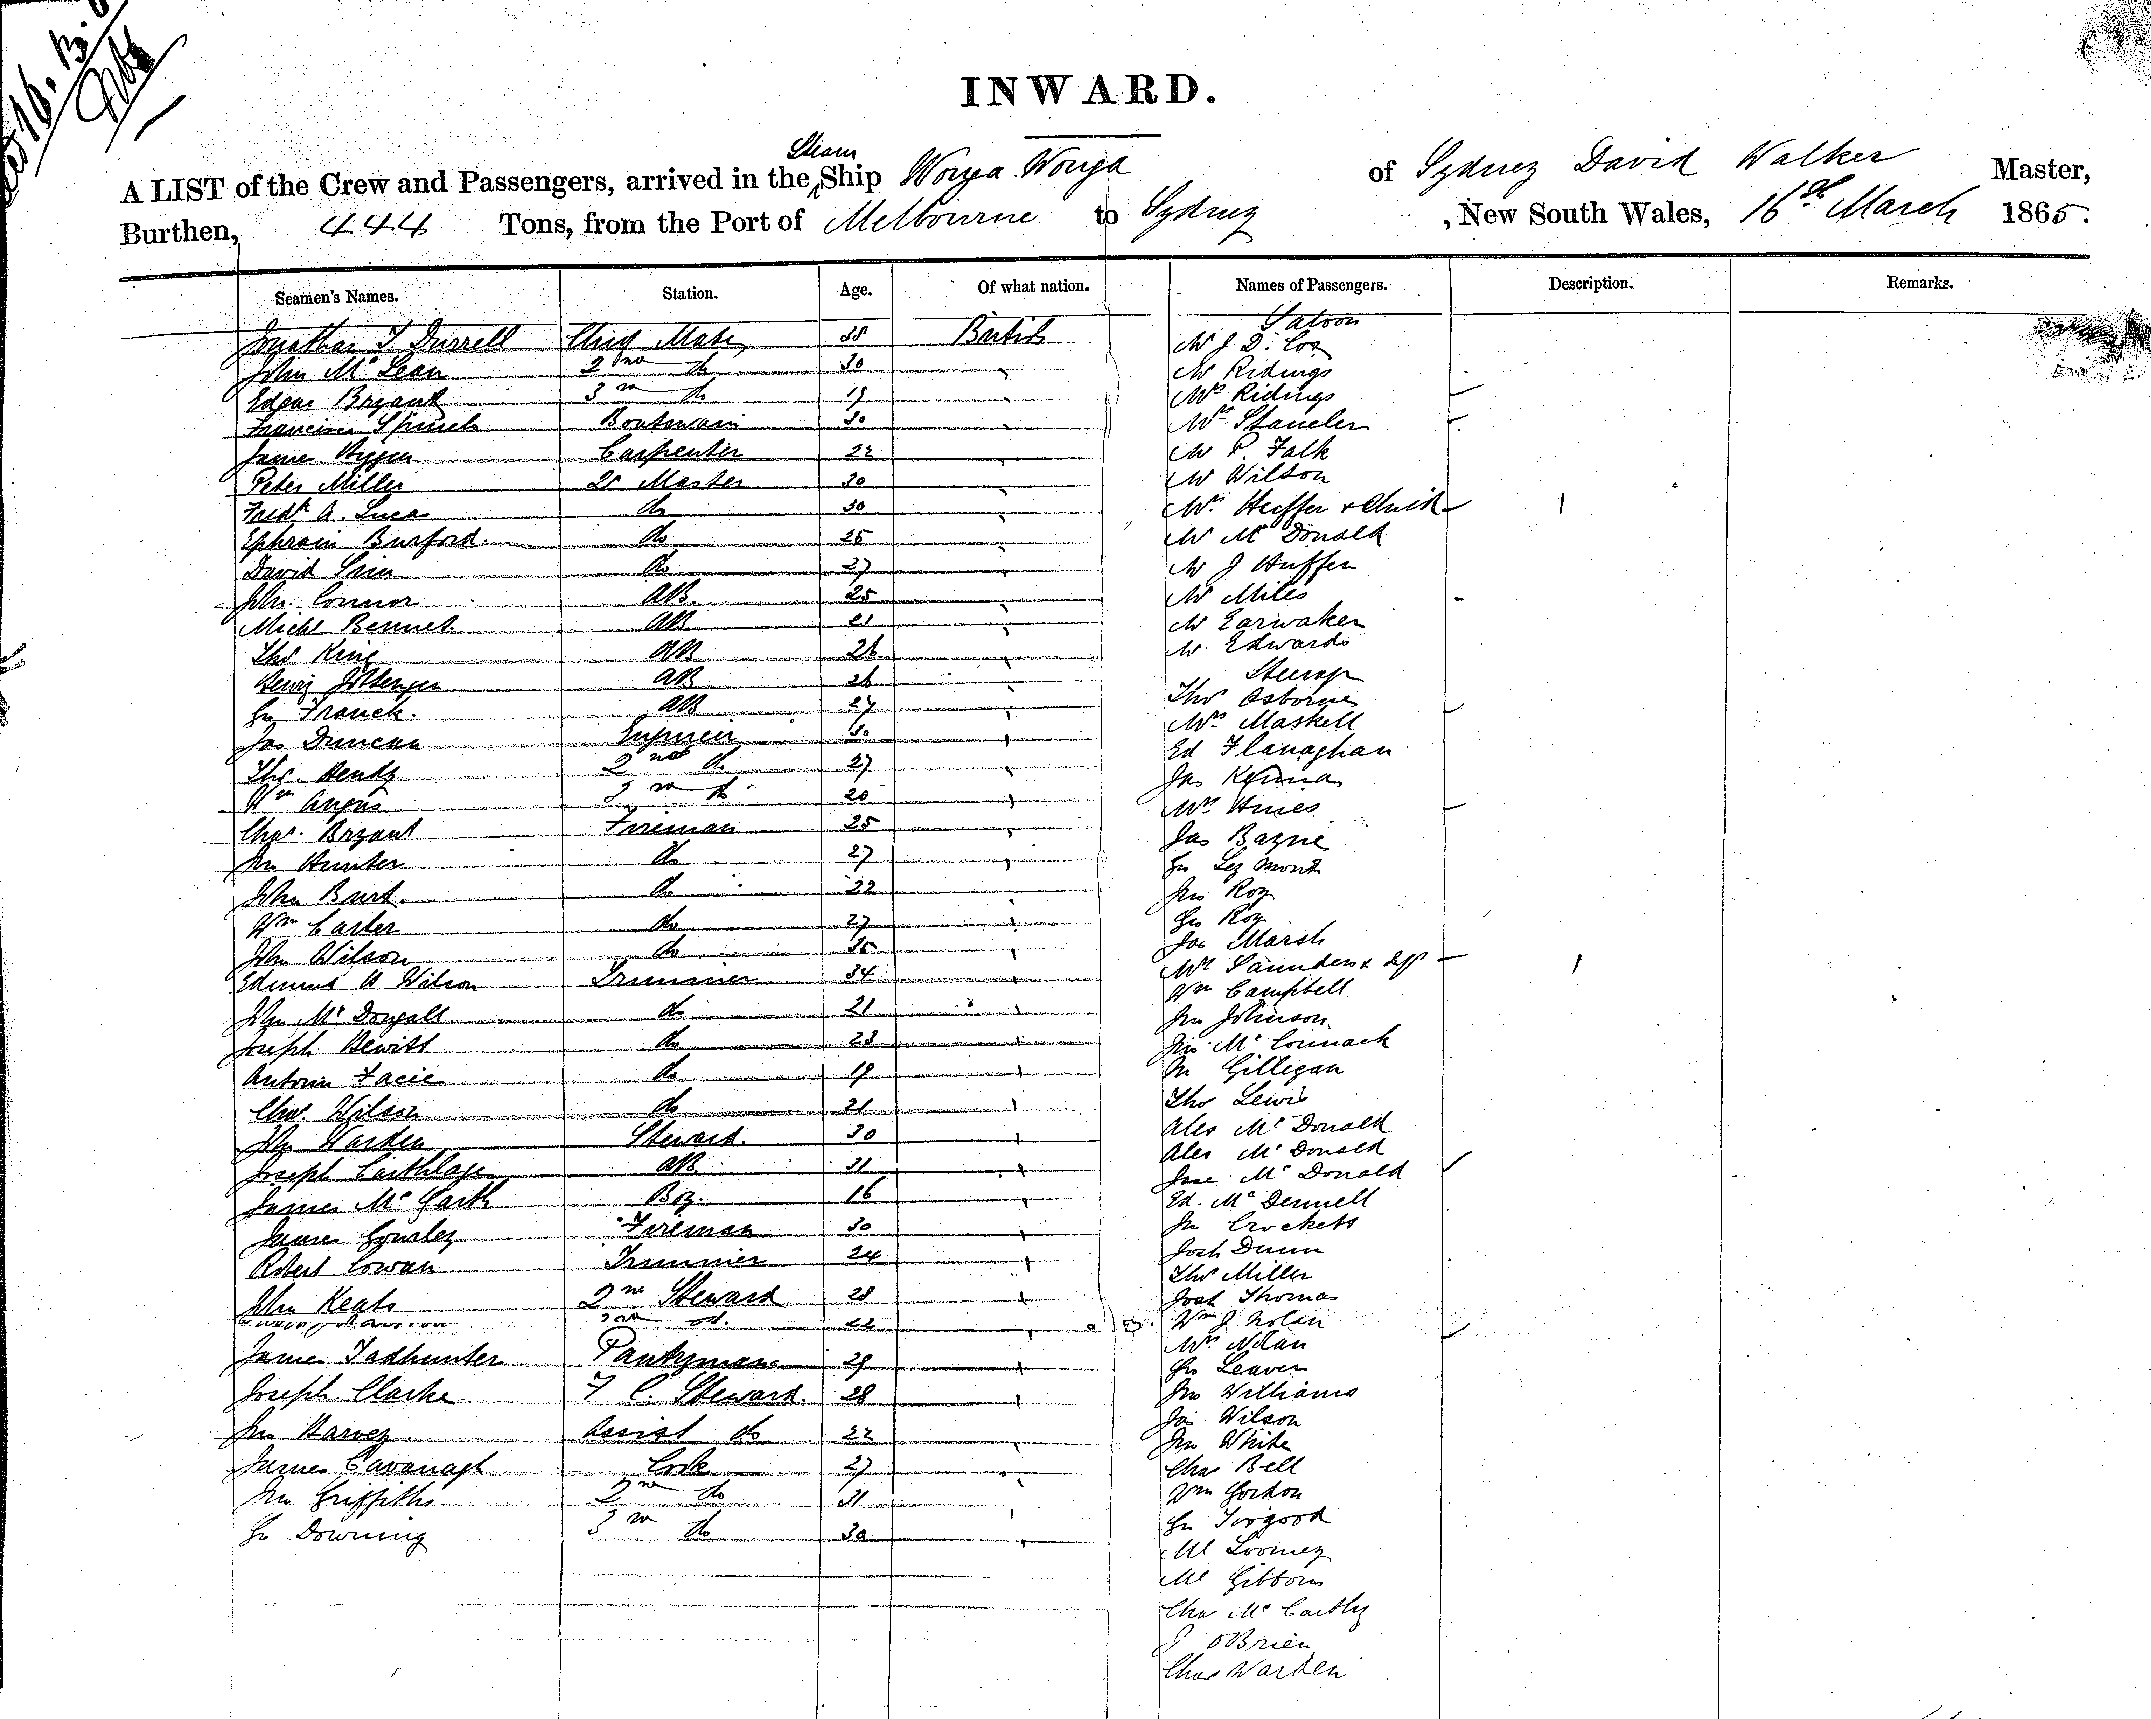 INWARD.
A LIST of the Crew and Passengers, arrived in the Steam Ship Wonga Wonga of Sydney David Walker Master,
Burthen, 444 Tons, from the Port of Melbourne to Sydney, New South Wales, 16th March 1865.
Seamen's Names. Station. Age. Of what nation. Names of Passengers. Description. Remarks.
Saloon
Jonathan T Durrell Chief Mate British Mr J. D. Cox
John McLean 2nd do 30 Mr Ridings
Edgar Bryant 3rd do 19 Mrs Ridings
Boatswain 30
James Carpenter 22 Mr P. Falk
Peter Miller Qr Master 30 Mr Wilson
Fredk A. Luca do 30 Mrs Huffer & Child
Ephraim Burford do 25 Mr McDonald
David do 27 Mr J Huffer
John Connor AB 25 Mr Miles
Michl Bennet AB 21 Mr Earwaker
Thos King AB 26 Mr Edwards
Steerage
Henry AB 26 Thos Osborne
Geo Franck AB 27 Mrs Maskell
Jas Duncan Engineer 30 Ed Flanaghan
Thos Hendy 2nd do 27 Jas
Wm Angus 3rd do 20 Mrs Hines
Chas. Bryant Fireman 25 Jas Bayne
Jno Hunter do 27 Geo
John Burt do 22 Jno Roy
Wm Carter do 27 Geo Roy
John Wilson do 35 Jos Marsh
Edmund A Wilson Trimmer 34 Mrs Saunders &
Wm Campbell
John McDougall do 21 Jno Johnson
Joseph Hewitt do 23 Jno McCormack
Antonio do 19 Jn Gillegan
Chas. Wilson do 21 Thos Lewis
John Warden Steward 30 Alex McDonald
Alex McDonald
Joseph AB 31 Jane McDonald
James McGarth Boy 16 Ed. McDennell
James Gourley Fireman 30 Jn Crockets
Robert Cowan Trimmer 24 Josh Dunn
Thos Miller
John Keats 2nd Steward 28 Josh Thomas
3rd do 22 Wm J Nolan
Mrs Nolan
James Tadhunter Pantryman 29 Geo Leaver
Joseph Clarke F C. Steward 28 Jno Williams
Jas Wilson
Jno Harvey Assist do 22 Jno White
James Cavanagh Cook 27 Chas Bell
Jno Griffiths 2nd do 31 Wm Gordon
Geo Downing 3rd do 30 Geo Torgood
Ml Loomey
Ml Gibbons
Chas McCarthy
J OBrien
Chas Warden